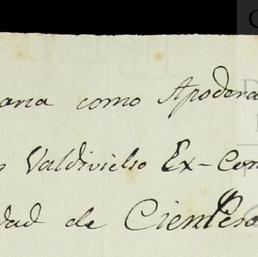 ana como Apodera
Valdivielso Ex-Con
dad de Cien Peso